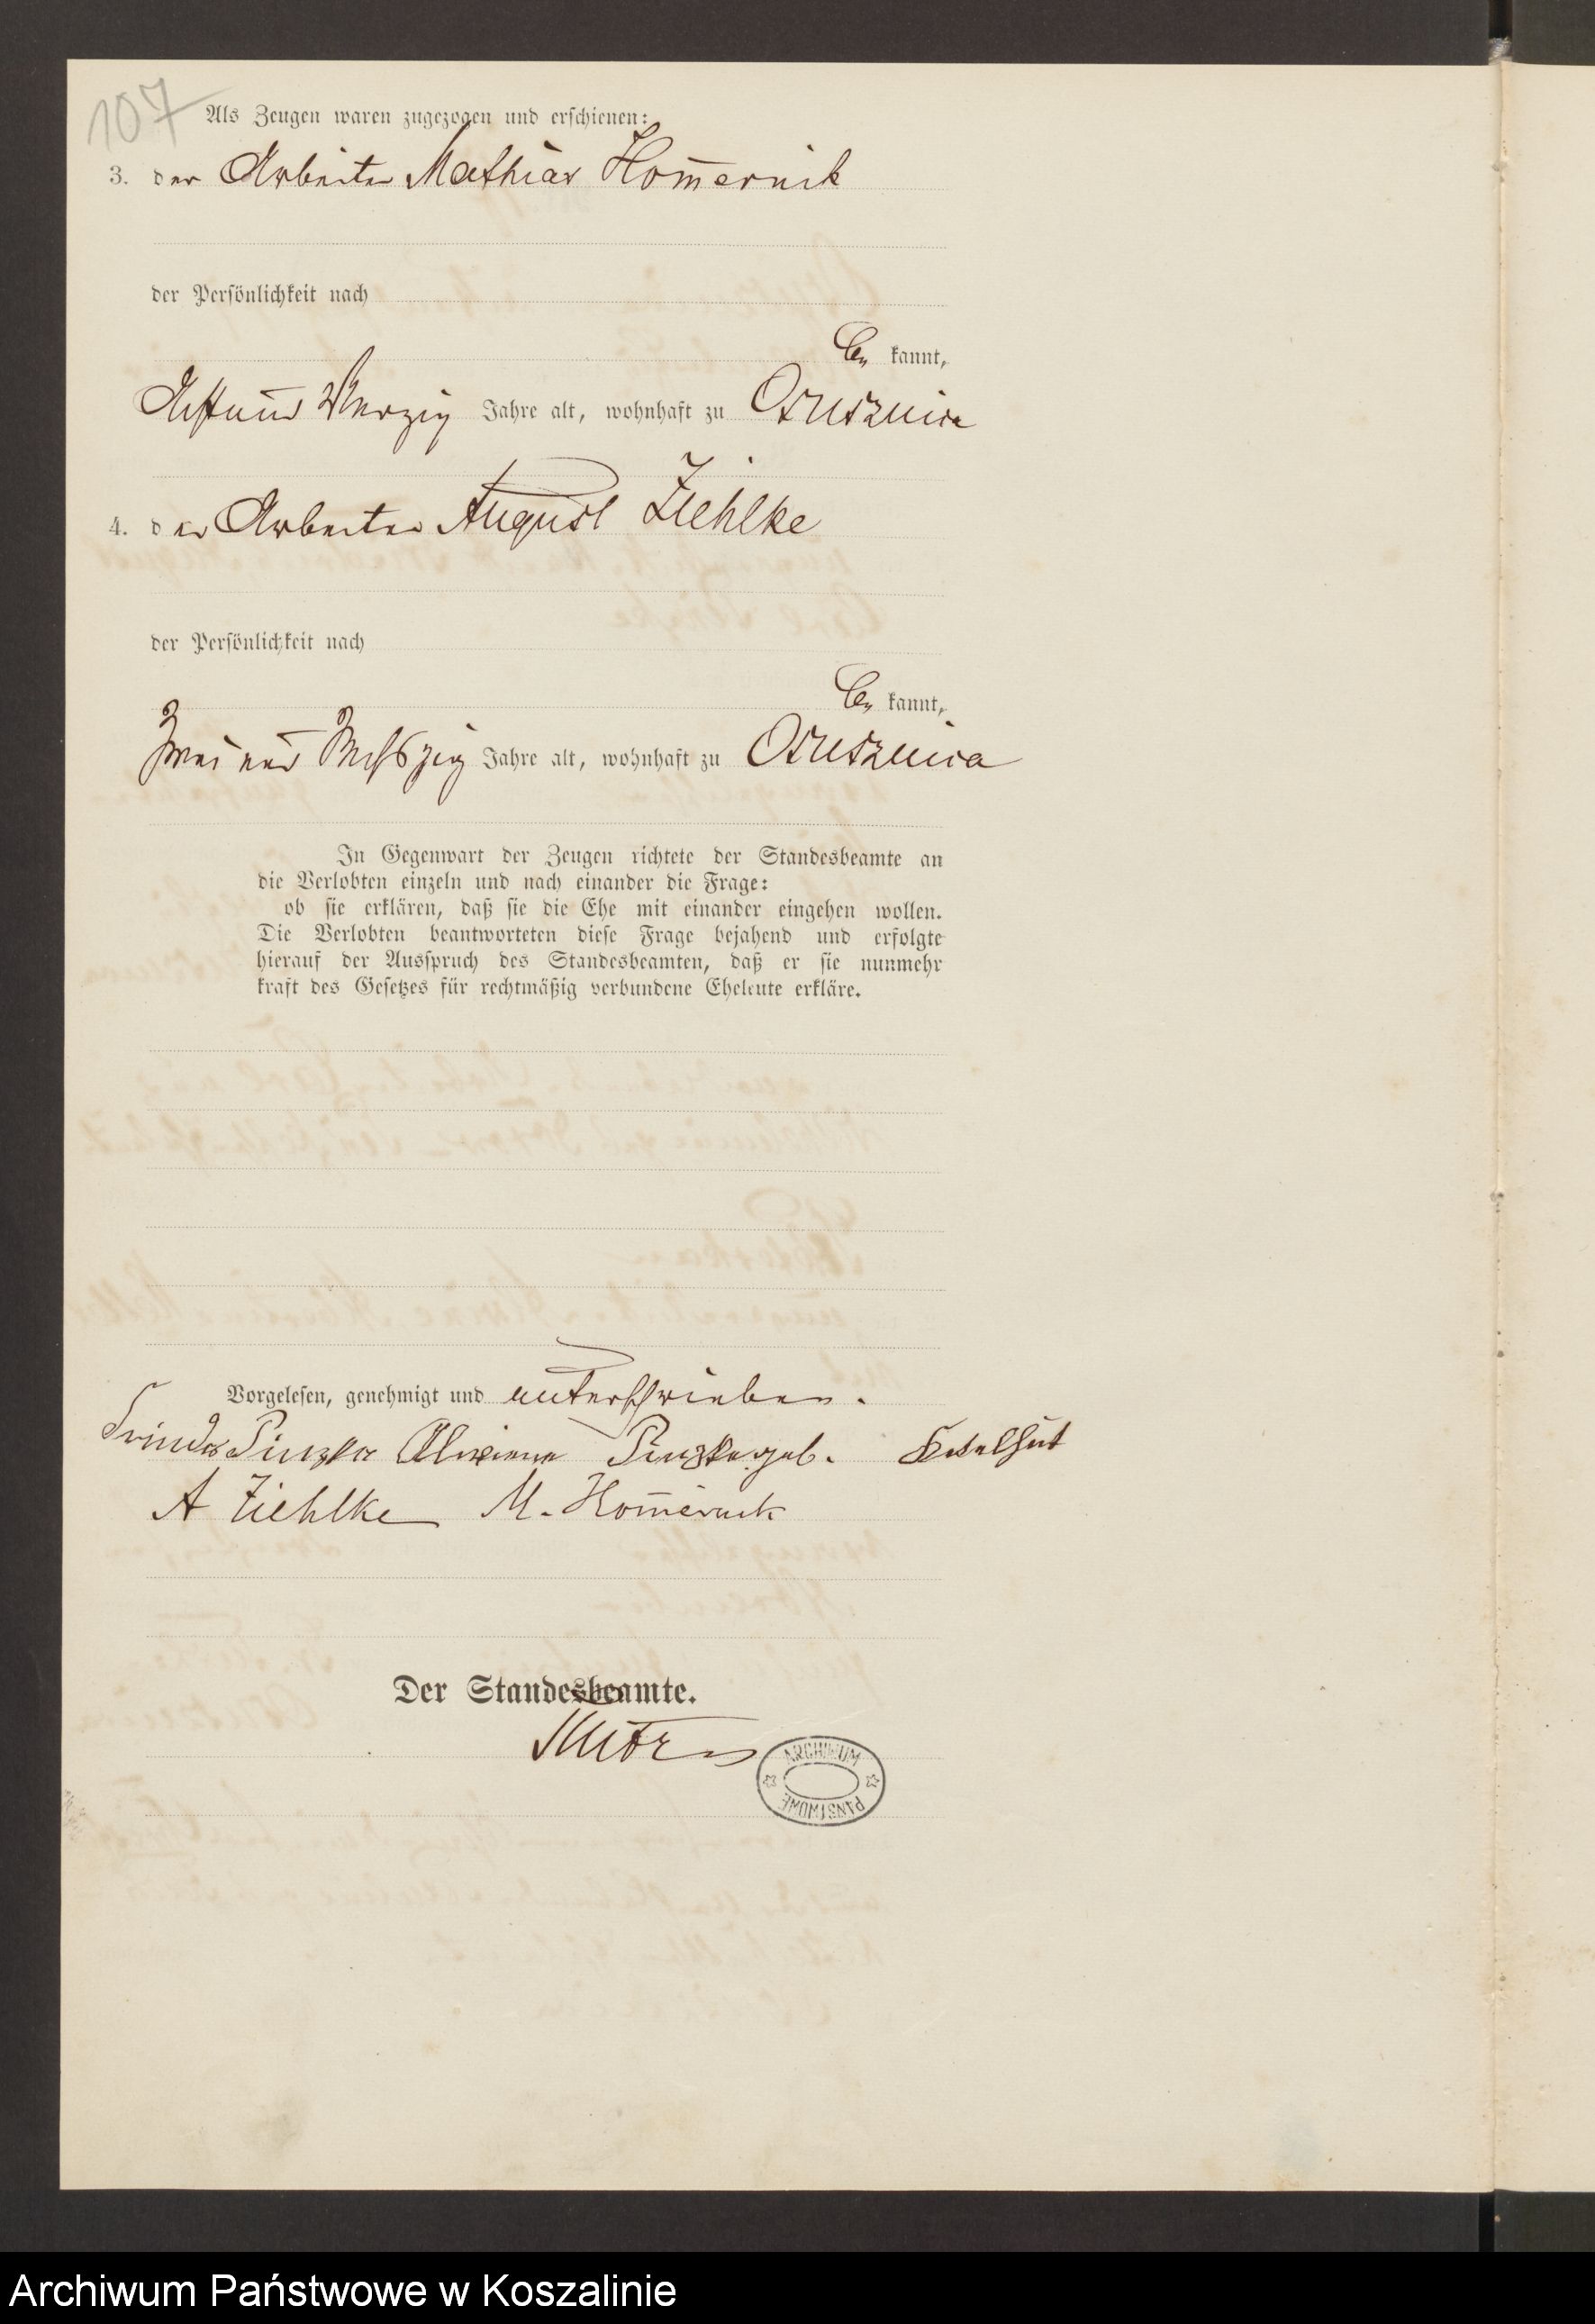 107
Als Zeugen waren zugezogen und erschienen:
3. der Arbeiter Mathias Hom̅ernik
der Persönlichkeit nach
be kannt,
Achtund Vierzig Jahre alt, wohnhaft zu Osuszniza
4. der Arbeiter August Ziehlke
der Persönlichkeit nach
be kannt,
Zwei und Jahre alt, wohnhaft zu Osuszniza
In Gegenwart der Zeugen richtete der Standesbeamte an
die Verlobten einzeln und nach einander die Frage:
ob sie erklären, daß sie die Ehe mit einander eingehen wollen.
Die Verlobten beantworteten diese Frage bejahend und erfolgte
hierauf der Ausspruch des Standesbeamten, daß er sie nunmehr
kraft des Gesetzes für rechtmäßig verbundene Eheleute erkläre.
Vorgelesen, genehmigt und unterschrieben.
Pinzke Alwiene Pinzke geb. Kedelhut
A Ziehlke M. Hom̅ernik
Der Standesbeamte.
ARCHIWUM PAŃSTWOWE
Archiwum Państwowe w Koszalinie